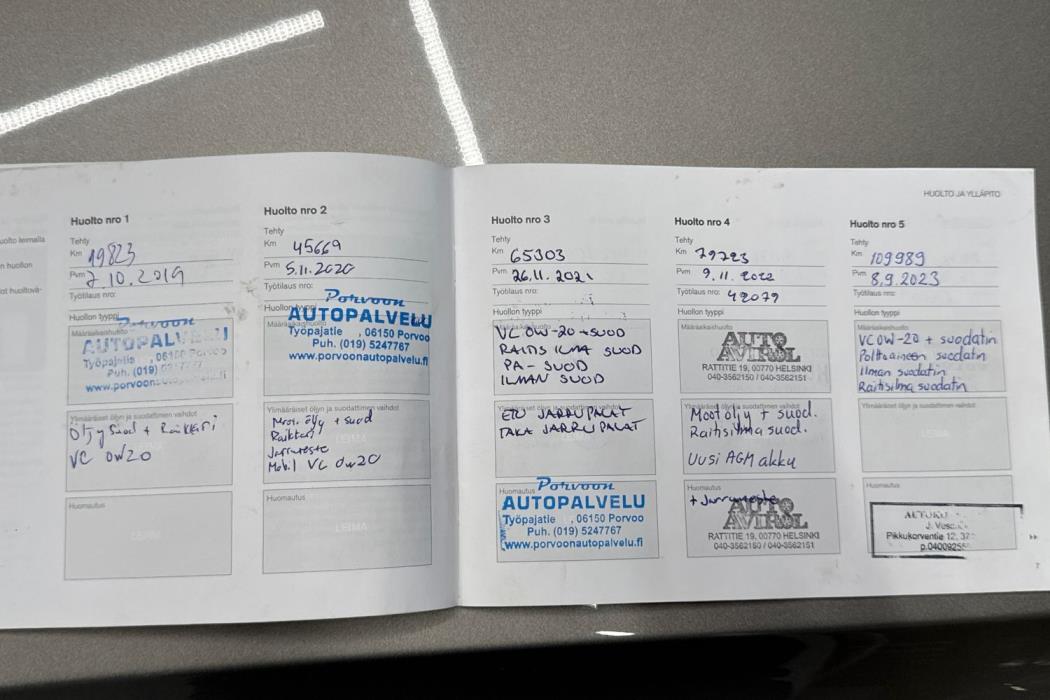 HUOLTO JA YLLÄPITO
Huolto nro 1
Tehty
Km 19823
Pvm 7.10.2019
Työtilaus nro:
Huollon tyyppi
Määräaikaishuolto
Porvoon
AUTOPALVELU
Työpajatie , 06150 Porvoo
Puh. (019) 5247767
www.porvoon
Ylimääräiset öljyn ja suodattimen vaihdot
Öljy suod + Raikkari
VC 0W20
Huomautus
Huolto nro 2
Tehty
Km 45669
Pvm 5.11.2020
Työtilaus nro:
Huollon tyyppi
Määräaikaishuolto
Porvoon
AUTOPALVELU
Työpajatie , 06150 Porvoo
Puh. (019) 5247767
www.porvoonautopalvelu.fi
Ylimääräiset öljyn ja suodattimen vaihdot
Moot. öljy + suod
Raikkari
Jarruneste
Mobil VC 0w20
Huomautus
LEIMA
Huolto nro 3
Tehty
Km 65303
Pvm 26.11.2021
Työtilaus nro:
Huollon tyyppi
VC 0W-20 + SUOD
RAITIS ILMA SUOD
PA- SUOD
ILMAN SUOD
ETU JARRUPALAT
TAKA JARRUPALAT
Huomautus
Porvoon
AUTOPALVELU
Työpajatie , 06150 Porvoo
Puh. (019) 5247767
www.porvoonautopalvelu.fi
Huolto nro 4
Tehty
Km 79723
Pvm 9.11.2022
Työtilaus nro: 42079
Huollon tyyppi
Määräaikaishuolto
AUTO
AVIROL
RATTITIE 19, 00770 HELSINKI
040-3562150 / 040-3562151
Ylimääräiset öljyn ja suodattimen vaihdot
Moot öljy + suod.
Raitisilma suod.
Uusi AGM akku
Huomautus
+ Jarruneste
AUTO
AVIROL
RATTITIE 19, 00770 HELSINKI
040-3562150 / 040-3562151
Huolto nro 5
Tehty
Km 109989
Pvm 8.9.2023
Työtilaus nro:
Huollon tyyppi
Määräaikaishuolto
VC 0W-20 + suodatin
Polttoaineen suodatin
Ilman suodatin
Raitisilma suodatin
Ylimääräiset öljyn ja suodattimen vaihdot
LEIMA
Huomautus
J.
Pikkukorventie 12,
7